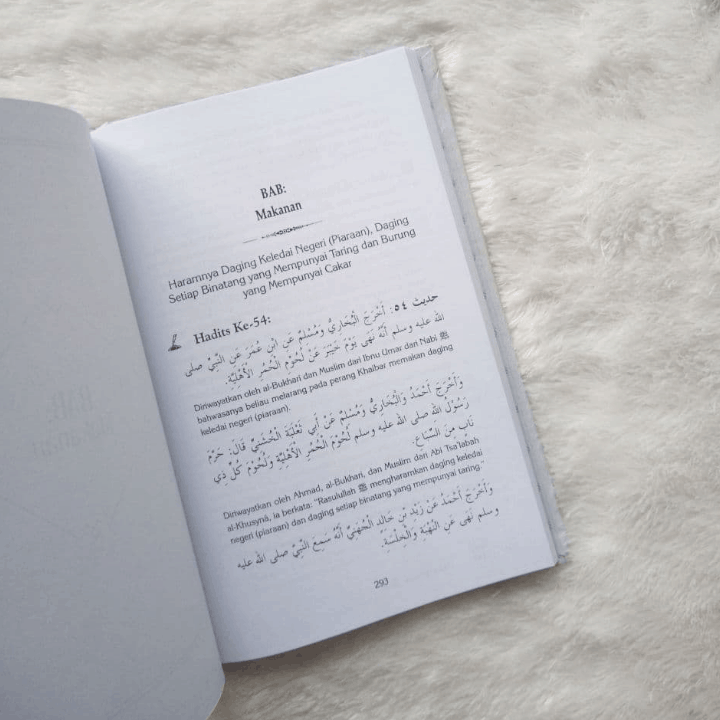 BAB:
Makanan
Haramnya Daging Keledai Negeri (Piaraan), Daging
Setiap Binatang yang Mempunyai Taring dan Burung
yang Mempunyai Cakar
Hadits Ke-54:
حديث ٥٤: أَخْرَجَ الْبُخَارِيُّ وَمُسْلِمٌ عَنِ ابْنِ عُمَرَ عَنِ النَّبِيِّ صلى
الله عليه وسلم أَنَّهُ نَهَى يَوْمَ خَيْبَرَ عَنْ لُحُوْمِ الْحُمُرِ الْأَهْلِيَّةِ.
Diriwayatkan oleh al-Bukhari dan Muslim dari Ibnu Umar dari Nabi ﷺ
bahwasanya beliau melarang pada perang Khaibar memakan daging
keledai negeri (piaraan).
وَأَخْرَجَ أَحْمَدُ وَالْبُخَارِيُّ وَمُسْلِمٌ عَنْ أَبِي ثَعْلَبَةَ الْخُشَنِيِّ قَالَ: حَرَّمَ
رَسُوْلُ الله صلى الله عليه وسلم لُحُوْمَ الْحُمُرِ الْأَهْلِيَّةِ وَلُحُوْمَ كُلِّ ذِي
نَابٍ مِنَ السِّبَاعِ.
Diriwayatkan oleh Ahmad, al-Bukhari, dan Muslim dari Abi Tsa'labah
al-Khusyna, ia berkata: "Rasulullah ﷺ mengharamkan daging keledai
negeri (piaraan) dan daging setiap binatang yang mempunyai taring."
وَأَخْرَجَ أَحْمَدُ عَنْ زَيْدِ بْنِ خَالِدٍ الْجُهَنِيِّ أَنَّهُ سَمِعَ النَّبِيَّ صلى الله عليه
وسلم نَهَى عَنِ النُّهْبَةِ وَالْخِلْسَةِ.
293